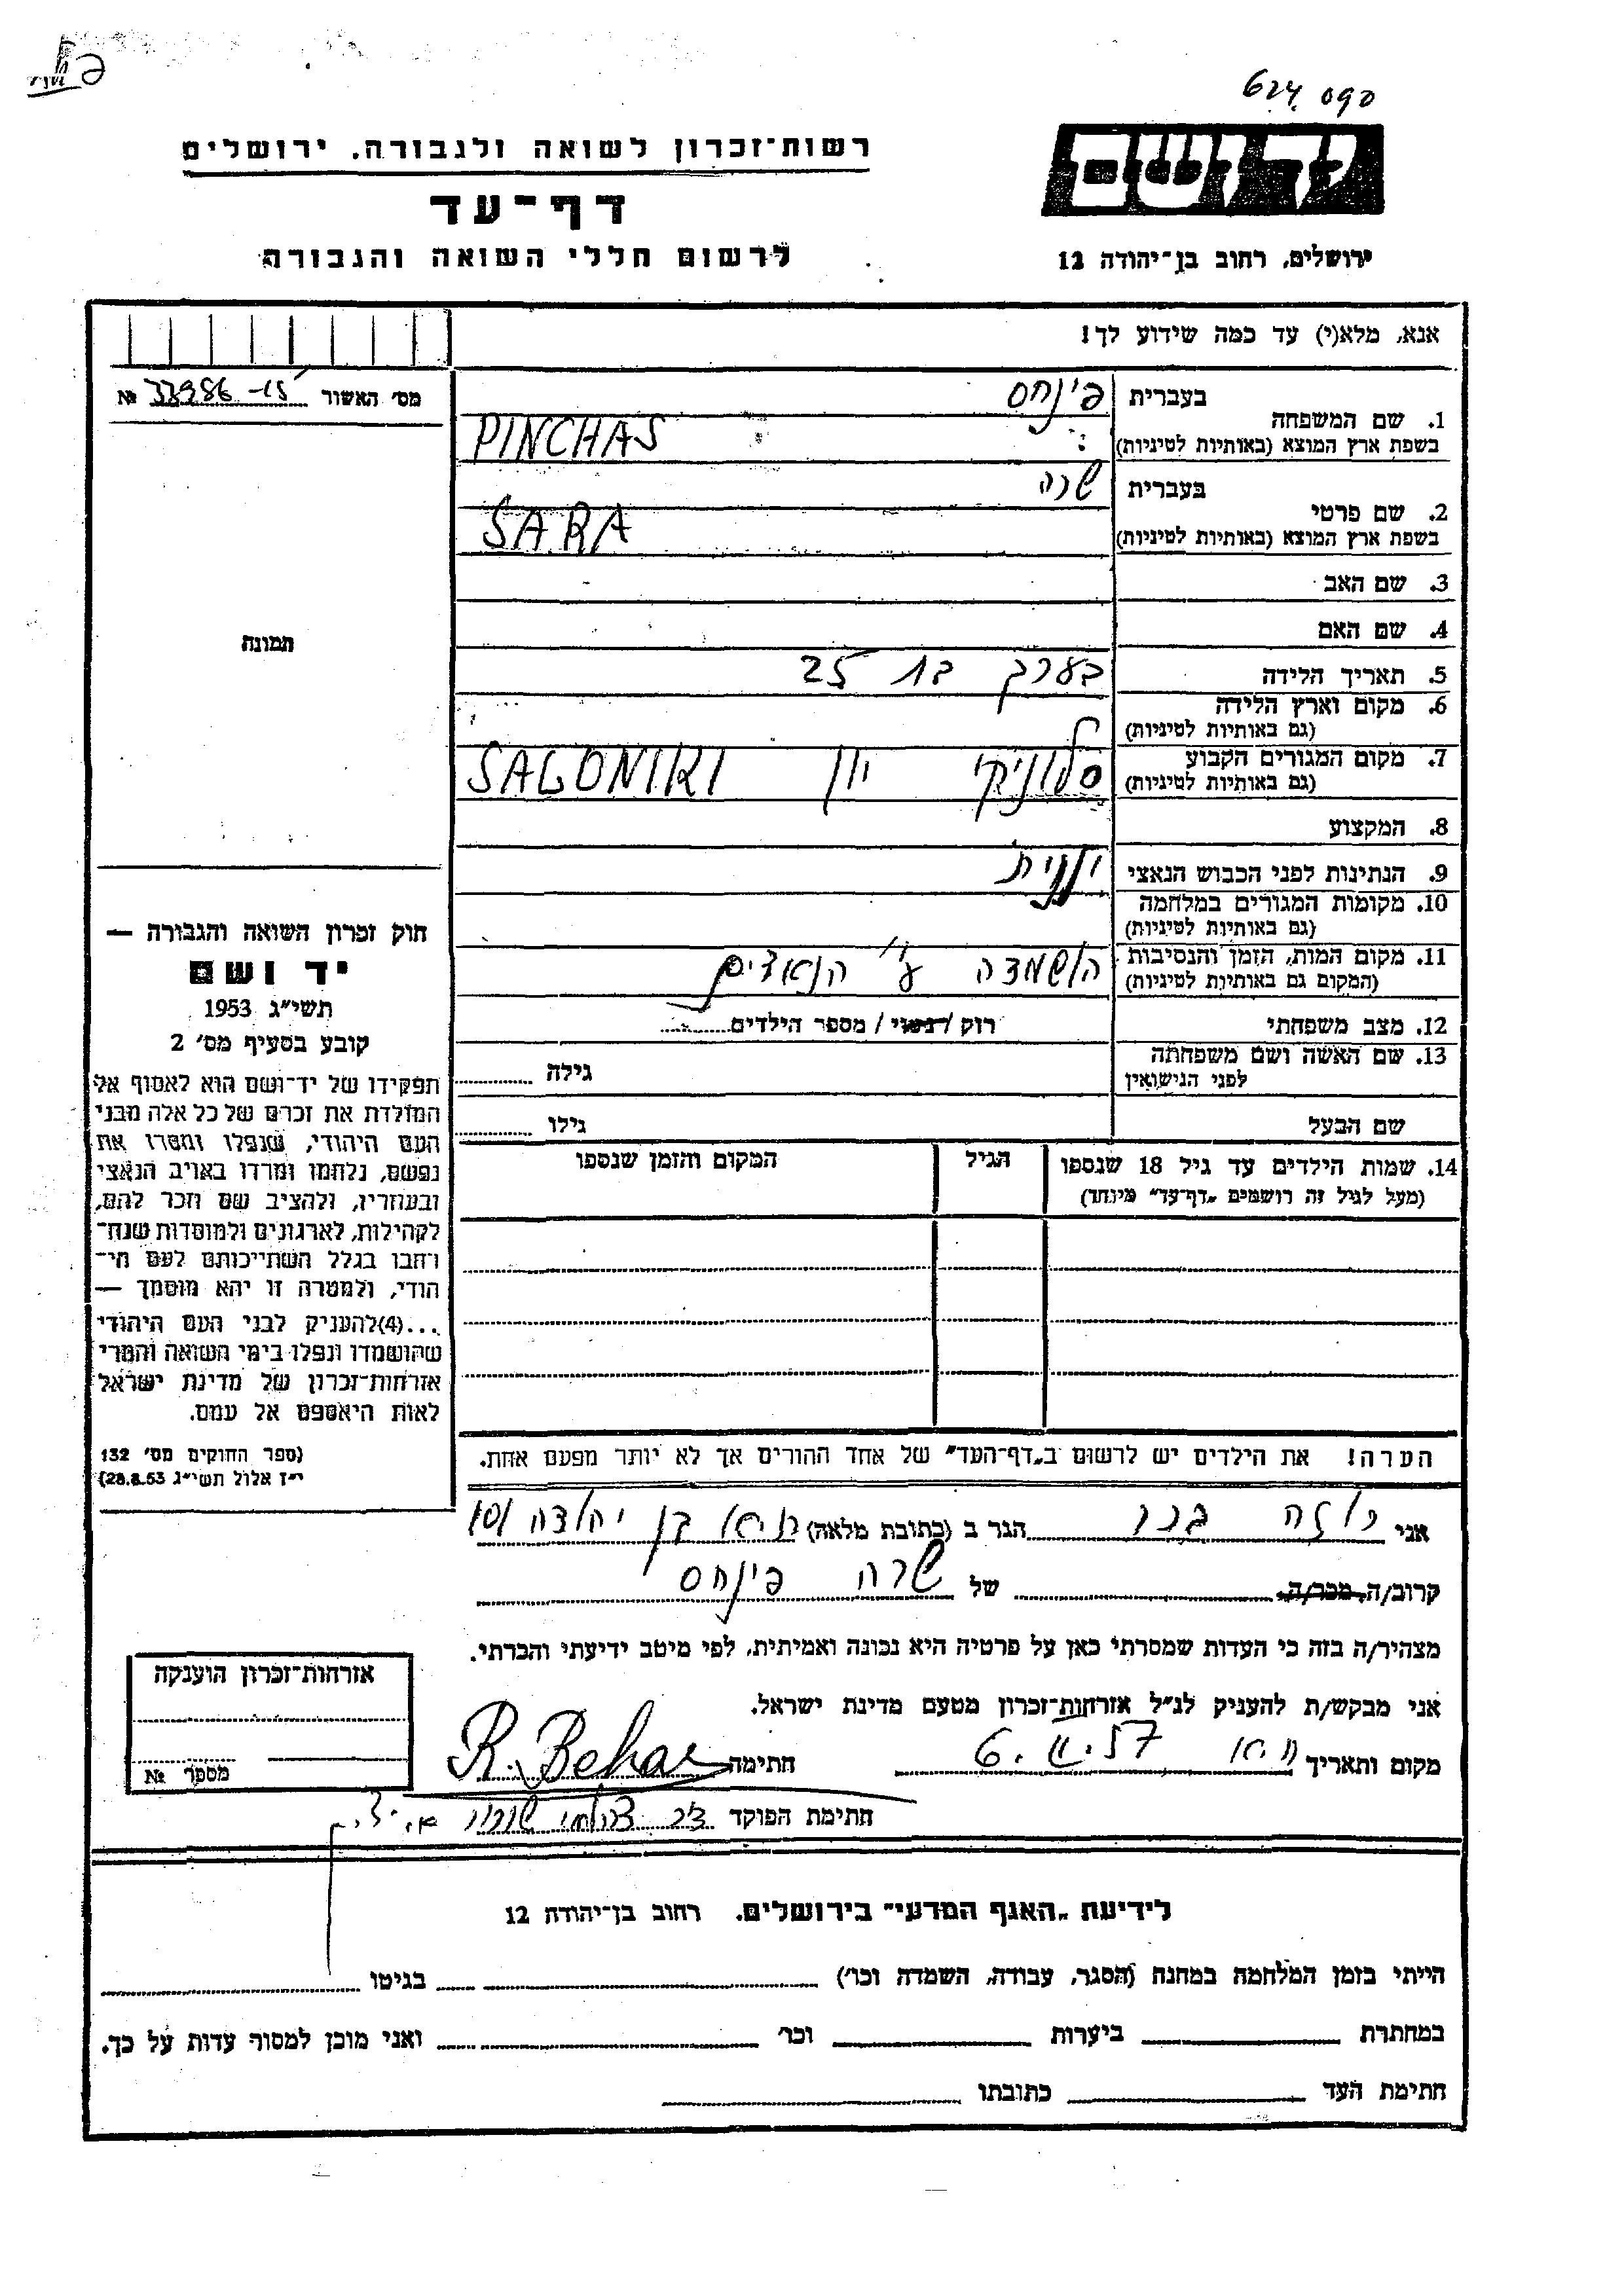 624 090
יד ושם
רשות־זכרון לשואה ולגבורה, ירושלים
דף־עד
לרשום חללי השואה והגבורה
ירושלים, רחוב בן־יהודה 12
אנא, מלא(י) עד כמה שידוע לך!
מס׳ האשור № 33986-15
1. שם המשפחה
בעברית פינחס
בשפת ארץ המוצא (באותיות לטיניות) PINCHAS
2. שם פרטי
בעברית שרה
בשפת ארץ המוצא (באותיות לטיניות) SARA
3. שם האב
4. שם האם
תמונה
5. תאריך הלידה בערך בת 25
6. מקום וארץ הלידה
(גם באותיות לטיניות)
7. מקום המגורים הקבוע סלוניקי יון SALONIKI
(גם באותיות לטיניות)
8. המקצוע
9. הנתינות לפני הכבוש הנאצי יונית
10. מקומות המגורים במלחמה
(גם באותיות לטיניות)
11. מקום המות, הזמן והנסיבות הושמדה ע״י הנאצים
(המקום גם באותיות לטיניות)
12. מצב משפחתי רוק / נשוי / מספר הילדים
13. שם האשה ושם משפחתה
לפני הנישואין גילה
שם הבעל גילו
14. שמות הילדים עד גיל 18 שנספו הגיל המקום והזמן שנספו
(מעל לגיל זה רושמים „דף־עד״ מיוחד)
חוק זכרון השואה והגבורה —
יד ושם
תשי״ג 1953
קובע בסעיף מס׳ 2
תפקידו של יד־ושם הוא לאסוף אל
המולדת את זכרם של כל אלה מבני
העם היהודי, שנפלו ומסרו את
נפשם, נלחמו ומרדו באויב הנאצי
ובעוזריו, ולהציב שם וזכר להם,
לקהילות, לארגונים ולמוסדות שנח־
רחבו בגלל השתייכותם לעם הי־
הודי, ולמטרה זו יהא מוסמך —
...(4)להעניק לבני העם היהודי
שהושמדו ונפלו בימי השואה והמרי
אזרחות־זכרון של מדינת ישראל
לאות היאספם אל עמם.
(ספר החוקים מס׳ 132
י״ז אלול תשי״ג 28.8.53)
הערה! את הילדים יש לרשום ב„דף־העד״ של אחד ההורים אך לא יותר מפעם אחת.
אני רוזה בכר הגר ב (כתובת מלאה) ת״א בן יהודה 101
קרוב/ה, מכר/ה של שרה פינחס
מצהיר/ה בזה כי העדות שמסרתי כאן על פרטיה היא נכונה ואמיתית, לפי מיטב ידיעתי והכרתי.
אני מבקש/ת להעניק לנ״ל אזרחות־זכרון מטעם מדינת ישראל.
מקום ותאריך ת״א 6.II.57 חתימה R. Behar
חתימת הפוקד
אזרחות־זכרון הוענקה
מספר №
לידיעת „האגף המדעי״ בירושלים, רחוב בן־יהודה 12
הייתי בזמן המלחמה במחנה (הסגר, עבודה, השמדה וכו׳) בגיטו
במחתרת ביערות וכו׳ ואני מוכן למסור עדות על כך.
חתימת העד כתובתו